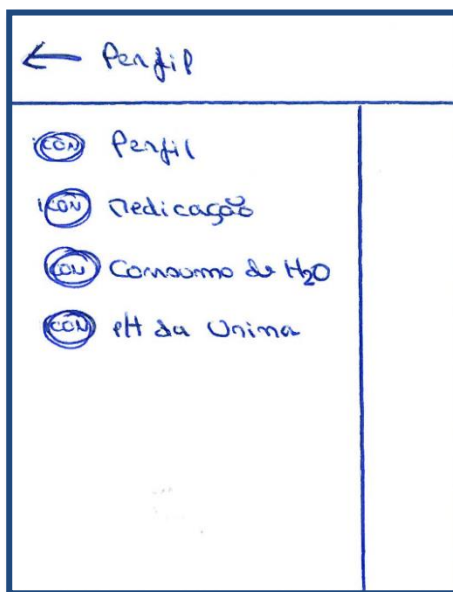 ← Perfil
icon Perfil
icon Medicação
icon Consumo de H2O
icon pH da Urina